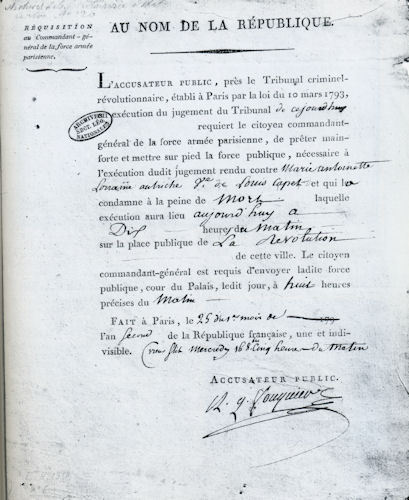 RÉQUISITION
au Commandant-gé-
néral de la force armée
parisienne.
AU NOM DE LA RÉPUBLIQUE.
L'ACCUSATEUR PUBLIC, près le Tribunal criminel-
révolutionnaire, établi à Paris par la loi du 10 mars 1793,
exécution du jugement du Tribunal de cejourdhuy
requiert le citoyen commandant-
général de la force armée parisienne, de prêter main-
forte et mettre sur pied la force publique, nécessaire à
l'exécution dudit jugement rendu contre Marie antoinette
Lorraine autriche Ve de Louis Capet et qui la
condamne à la peine de Mort laquelle
exécution aura lieu aujourd'huy a
Dix heures du matin
sur la place publique de La Revolution
de cette ville. Le citoyen
commandant-général est requis d'envoyer ladite force
publique, cour du Palais, ledit jour, à huit heures
précises du Matin
FAIT à Paris, le 25 du 1er mois de 179
l'an second de la République française, une et indi-
visible. Mercredy 16 8bre Cinq heures du Matin
ACCUSATEUR PUBLIC.
A. q. Fouquier
ARCHIVES
SECT. LÉG.
NATIONALES